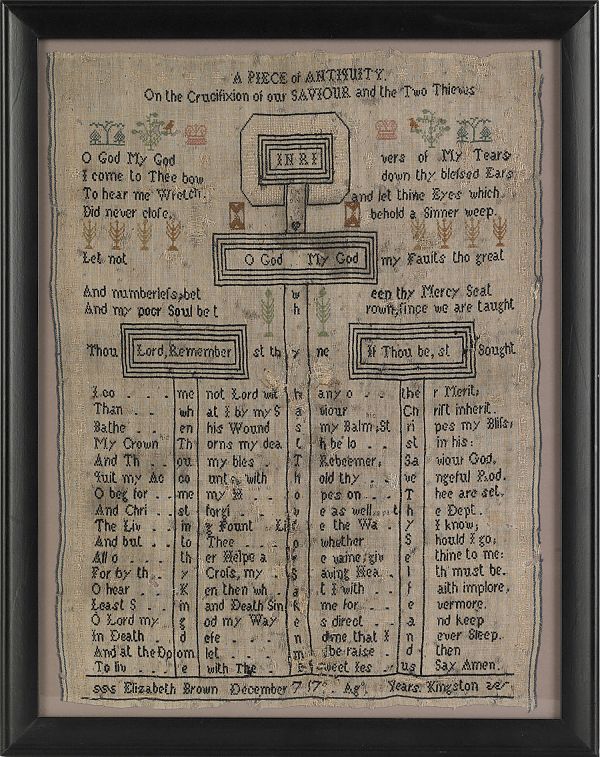 A PIECE of ANTIQUITY
On the Crucifixion of our SAVIOUR and the Two Thieves
INRI
O God My God vers of My Tears
I come to Thee bow down thy blessed Ears
To hear me Wretch and let thine Eyes which
Did never close, behold a Sinner weep.
Let not O God My God my Faults tho great
And numberless, bet w een thy Mercy Seat
And my poor Soul be t h rown, since we are taught
Thou Lord, Remember st th y ne If Thou be, st Sought
I co . . . me not Lord wit h any o . . . the r Merit;
Than . . wh at I by my S a viour Ch rist inherit.
Bathe . . en his Wound s my Balm, St ri pes my Bliss;
My Crown Th orns my dea t h be lo . . st in his:
And Th . . ou my bles . . T Redeemer, Sa viour God,
Quit my Ac co unt . with h old thy . . ve ngeful Rod.
O beg for . . me my H . . o pes on . . T hee are set.
And Chri . . st forgi . . v e as well . . t h e Dept.
The Liv . . in g Fount Life e the Wa . . y I know;
And but . . to Thee . . o whether . . S hould I go;
All o . . . th er Helpe a r e vaine; giv e thine to me:
For by th . . y Cross, my . S aving Hea . l th must be.
O hear . . K en then wh a t I with . . f aith implore,
Least S . . in and Death Sin k me for . . e vermore.
O Lord my . g od my Way e s direct . a nd keep
In Death . . d efe . . n dme, that I n ever Sleep.
And at the Do om let . . m be raise . d then
To liv . . . e with The . E Sweet Jes . us Say Amen.
Elizabeth Brown December 7 17 Age Years. Kingston